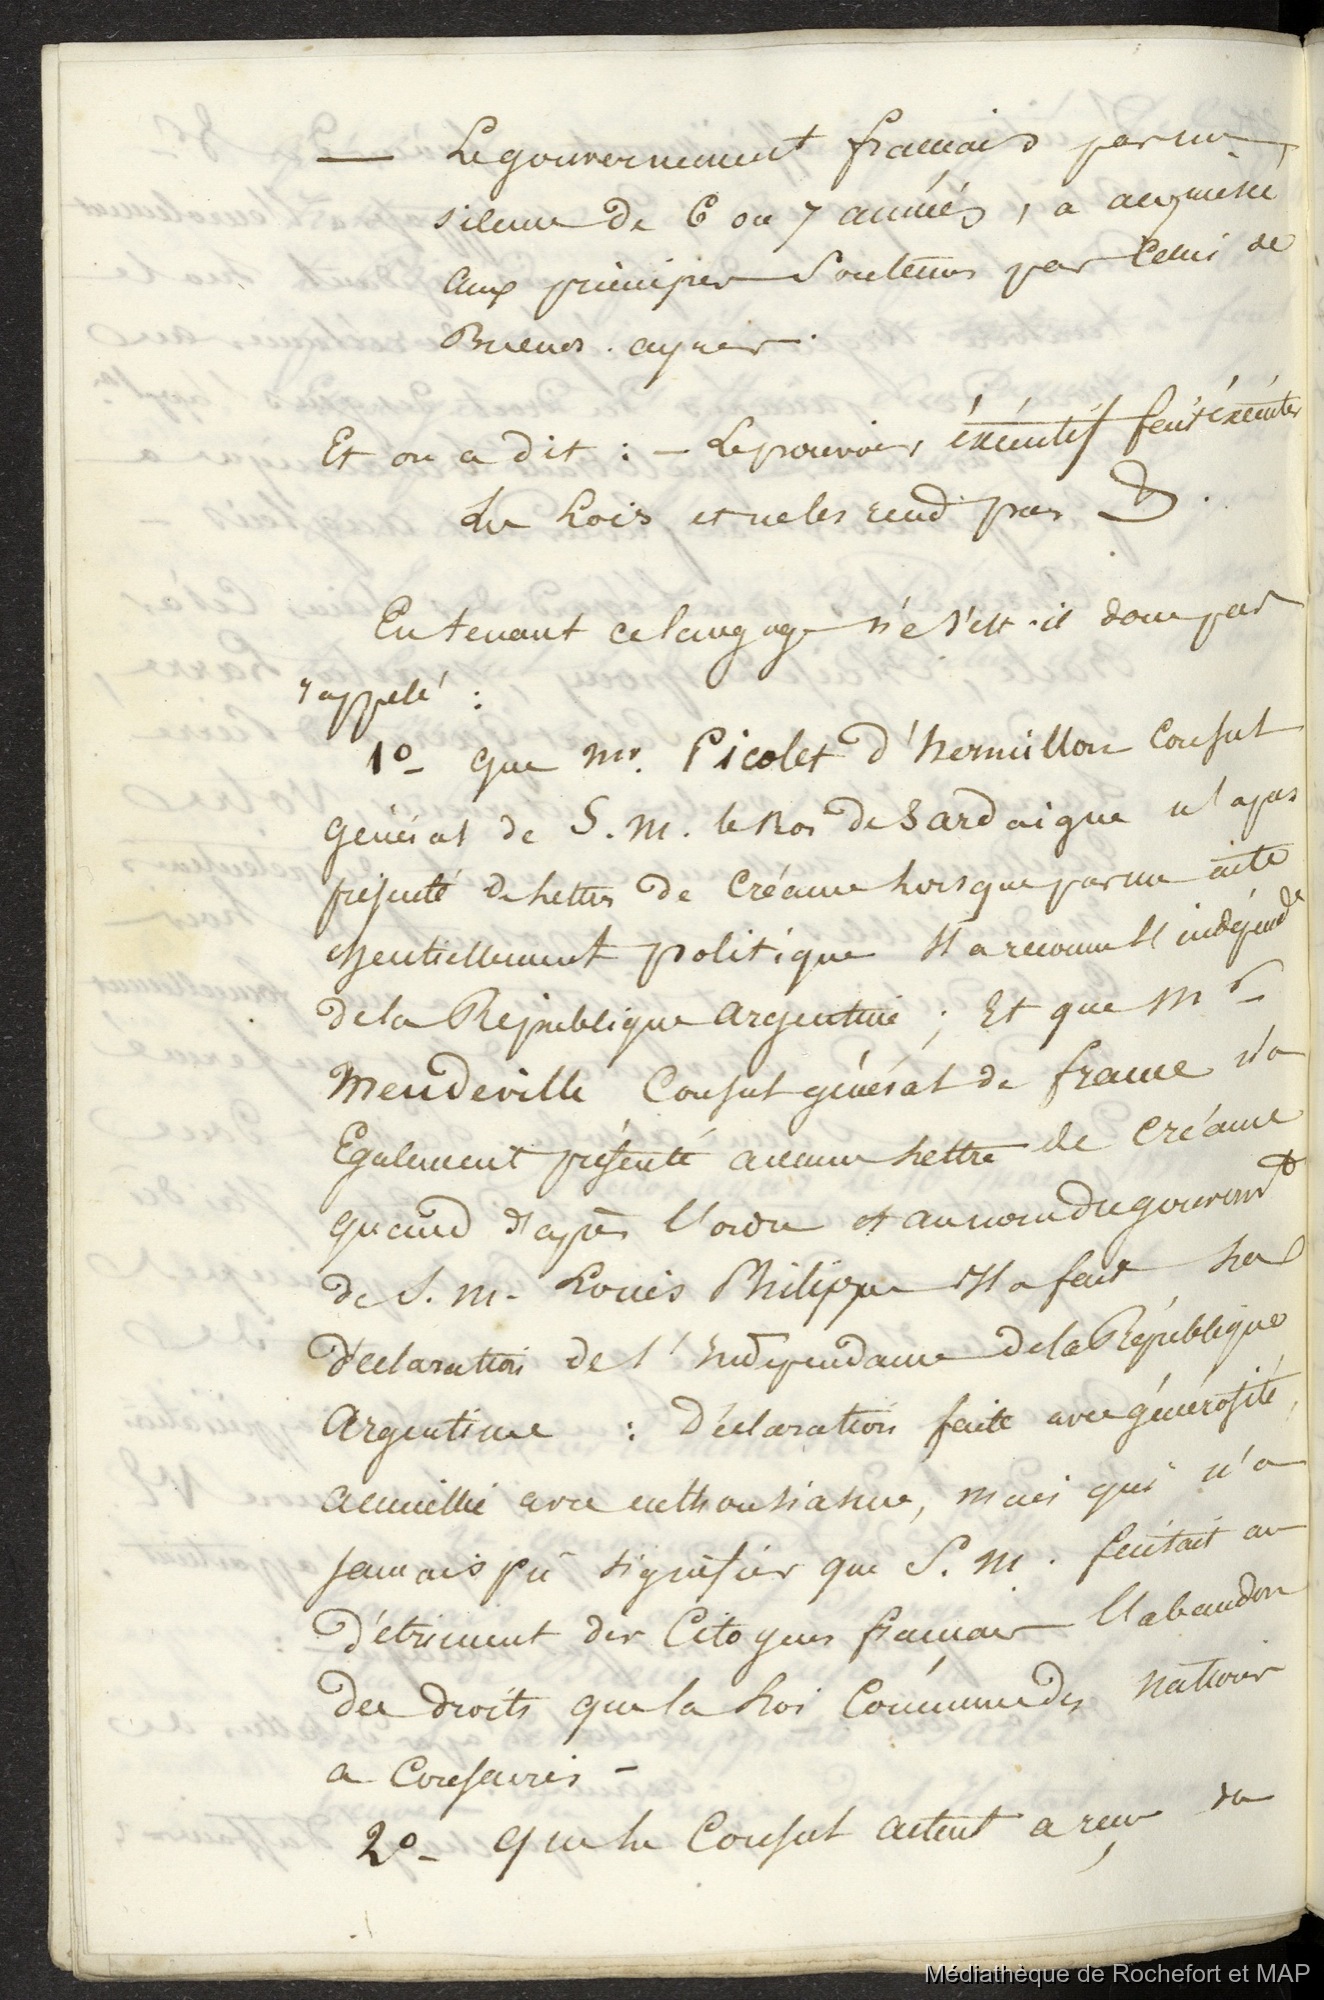 — Le gouvernement francais par un
silence de 6 ou 7 années, a acquiescé
aux principes soutenus par celui de
Buenos. ayres.
Et on a dit : — Le pouvoir, éxécutif fait éxécuter
les Lois et ne les rend pas
En tenant ce langage n'e s'est-il donc pas
rappelé :
1º- que Mr. Picolet d'hermillon Consul
général de S. M. le Roi de Sardaigne n'a pas
présenté de Lettres de Créance lorsque par un acte
essentiellement politique Il a reconnu l'indépendce
de la République argentine ; Et que Mr
Mendeville Consul général de france n'a
Egalement présenté aucune Lettre de Créance
quand d'après l'ordre et au nom du gouvernmt
de S. M. Louis Philippe Il a fait la
déclaration de l'Indépendance de la République
Argentine : déclaration faite avec générosité,
accueillie avec enthousiasme, mais qui n'a
jamais pû signifier que S. M. faisait au
détriment des Citoyens francais l'abandon
des droits que la Loi Commune des nations
a Consacrés -
2º- que le Consul actuel a reçu du
Médiathèque de Rochefort et MAP